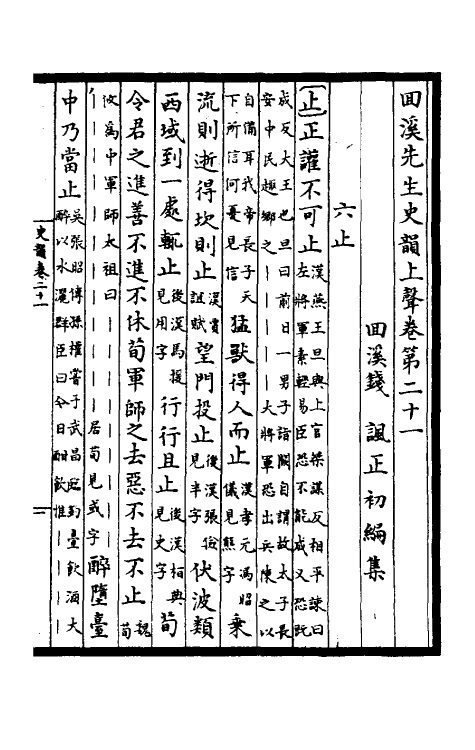 回溪先生史韻上聲卷第二十一
回溪錢 諷正初編集
六止
止正讙不可止漢燕王旦與上官桀謀反相平諫曰左將軍素輕易臣恐不能成又恐既成反大王也旦曰前日一男子詣闕自謂故太子長安中民趣鄉之一一一一大將軍恐出兵陳之以
自備耳我帝長子天下所信何憂見信猛獸得人而止漢孝元馮昭儀見熊字乗
流則逝得坎則止漢賈誼賦望門投止後漢張儉見半字伏波類
西域到一處輒止後漢馬援見用字行行且止後漢桓典見史字荀
令君之進善不進不休荀軍師之去惡不去不止魏荀
攸為中軍師太祖曰一一一一一一一一一一一一一一一一一一居荀見或字醉墮臺
中乃當止吳張昭傳孫權嘗于武昌臨釣臺飲酒大醉以水灑群臣曰今日酣飲惟一一一一一
史韻卷二十一
一